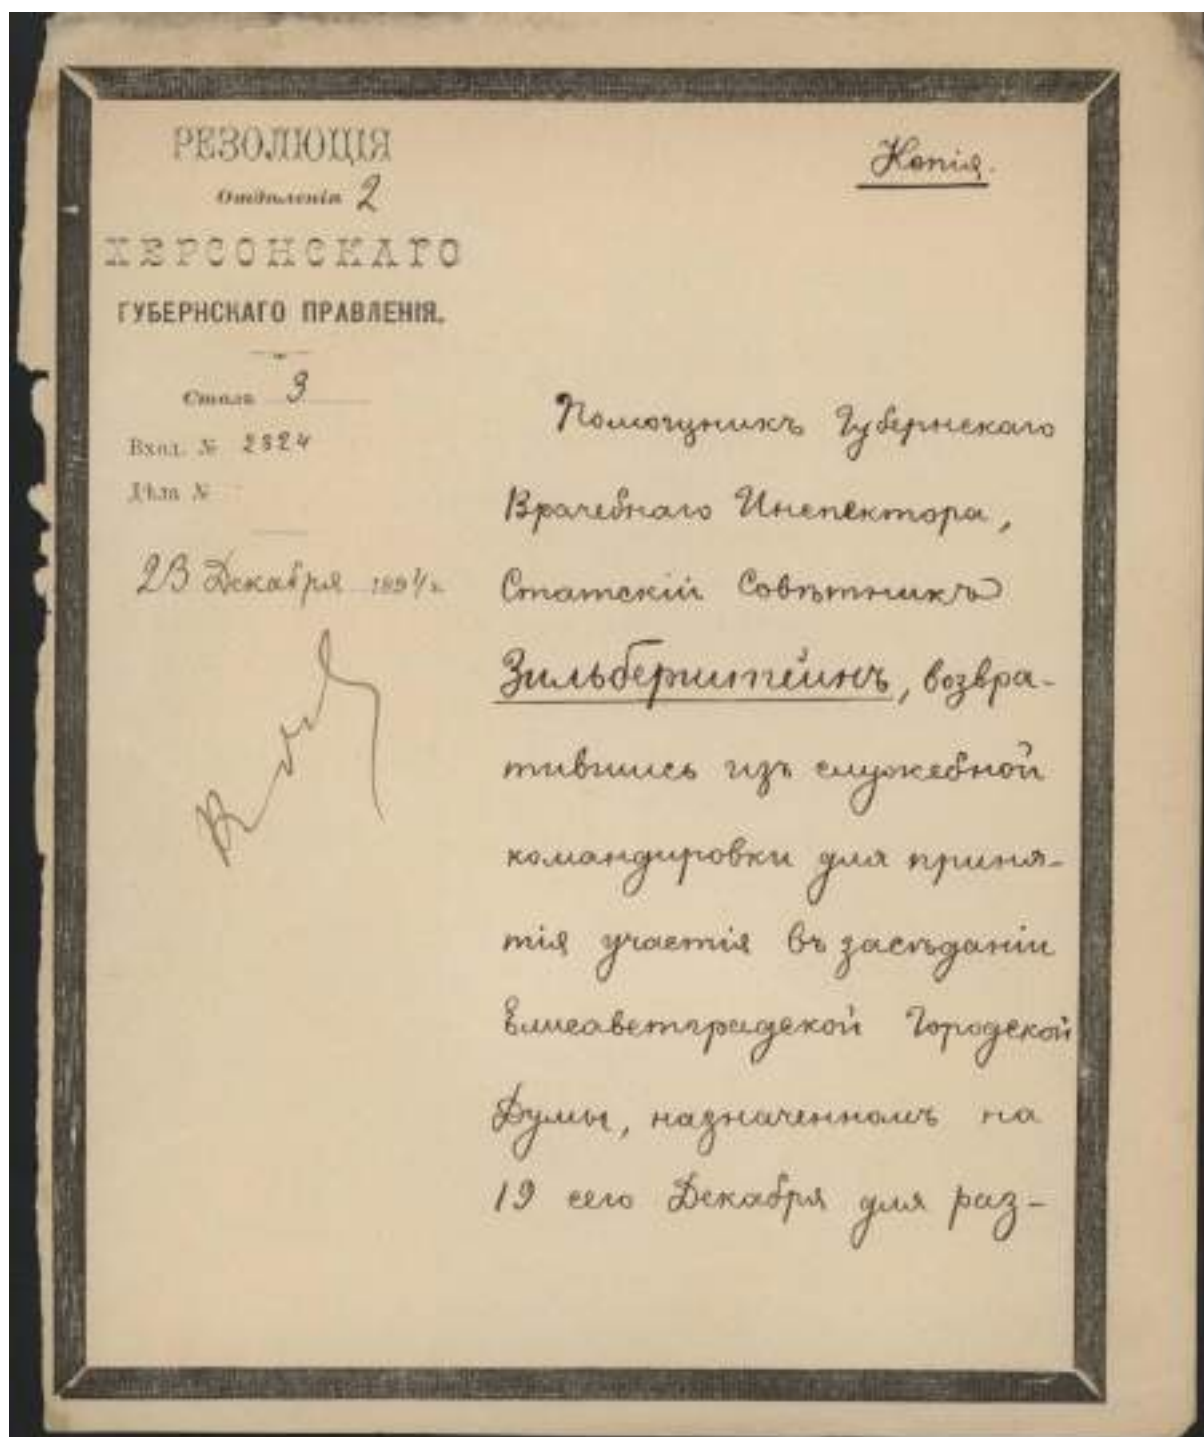 РЕЗОЛЮЦІЯ
Отдѣленія 2
ХЕРСОНСКАГО
ГУБЕРНСКАГО ПРАВЛЕНІЯ.
Столъ 3
Вход. № 2824
Дѣла №
23 Декабря 1894 г.
Копія.
Помощникъ Губернскаго
Врачебнаго Инспектора,
Статскій Совѣтникъ
Зильберштейнъ, возвра-
тившись изъ служебной
командировки для приня-
тія участія въ засѣданіи
Елисаветградской Городской
Думы, назначенномъ на
19 сего Декабря для раз-